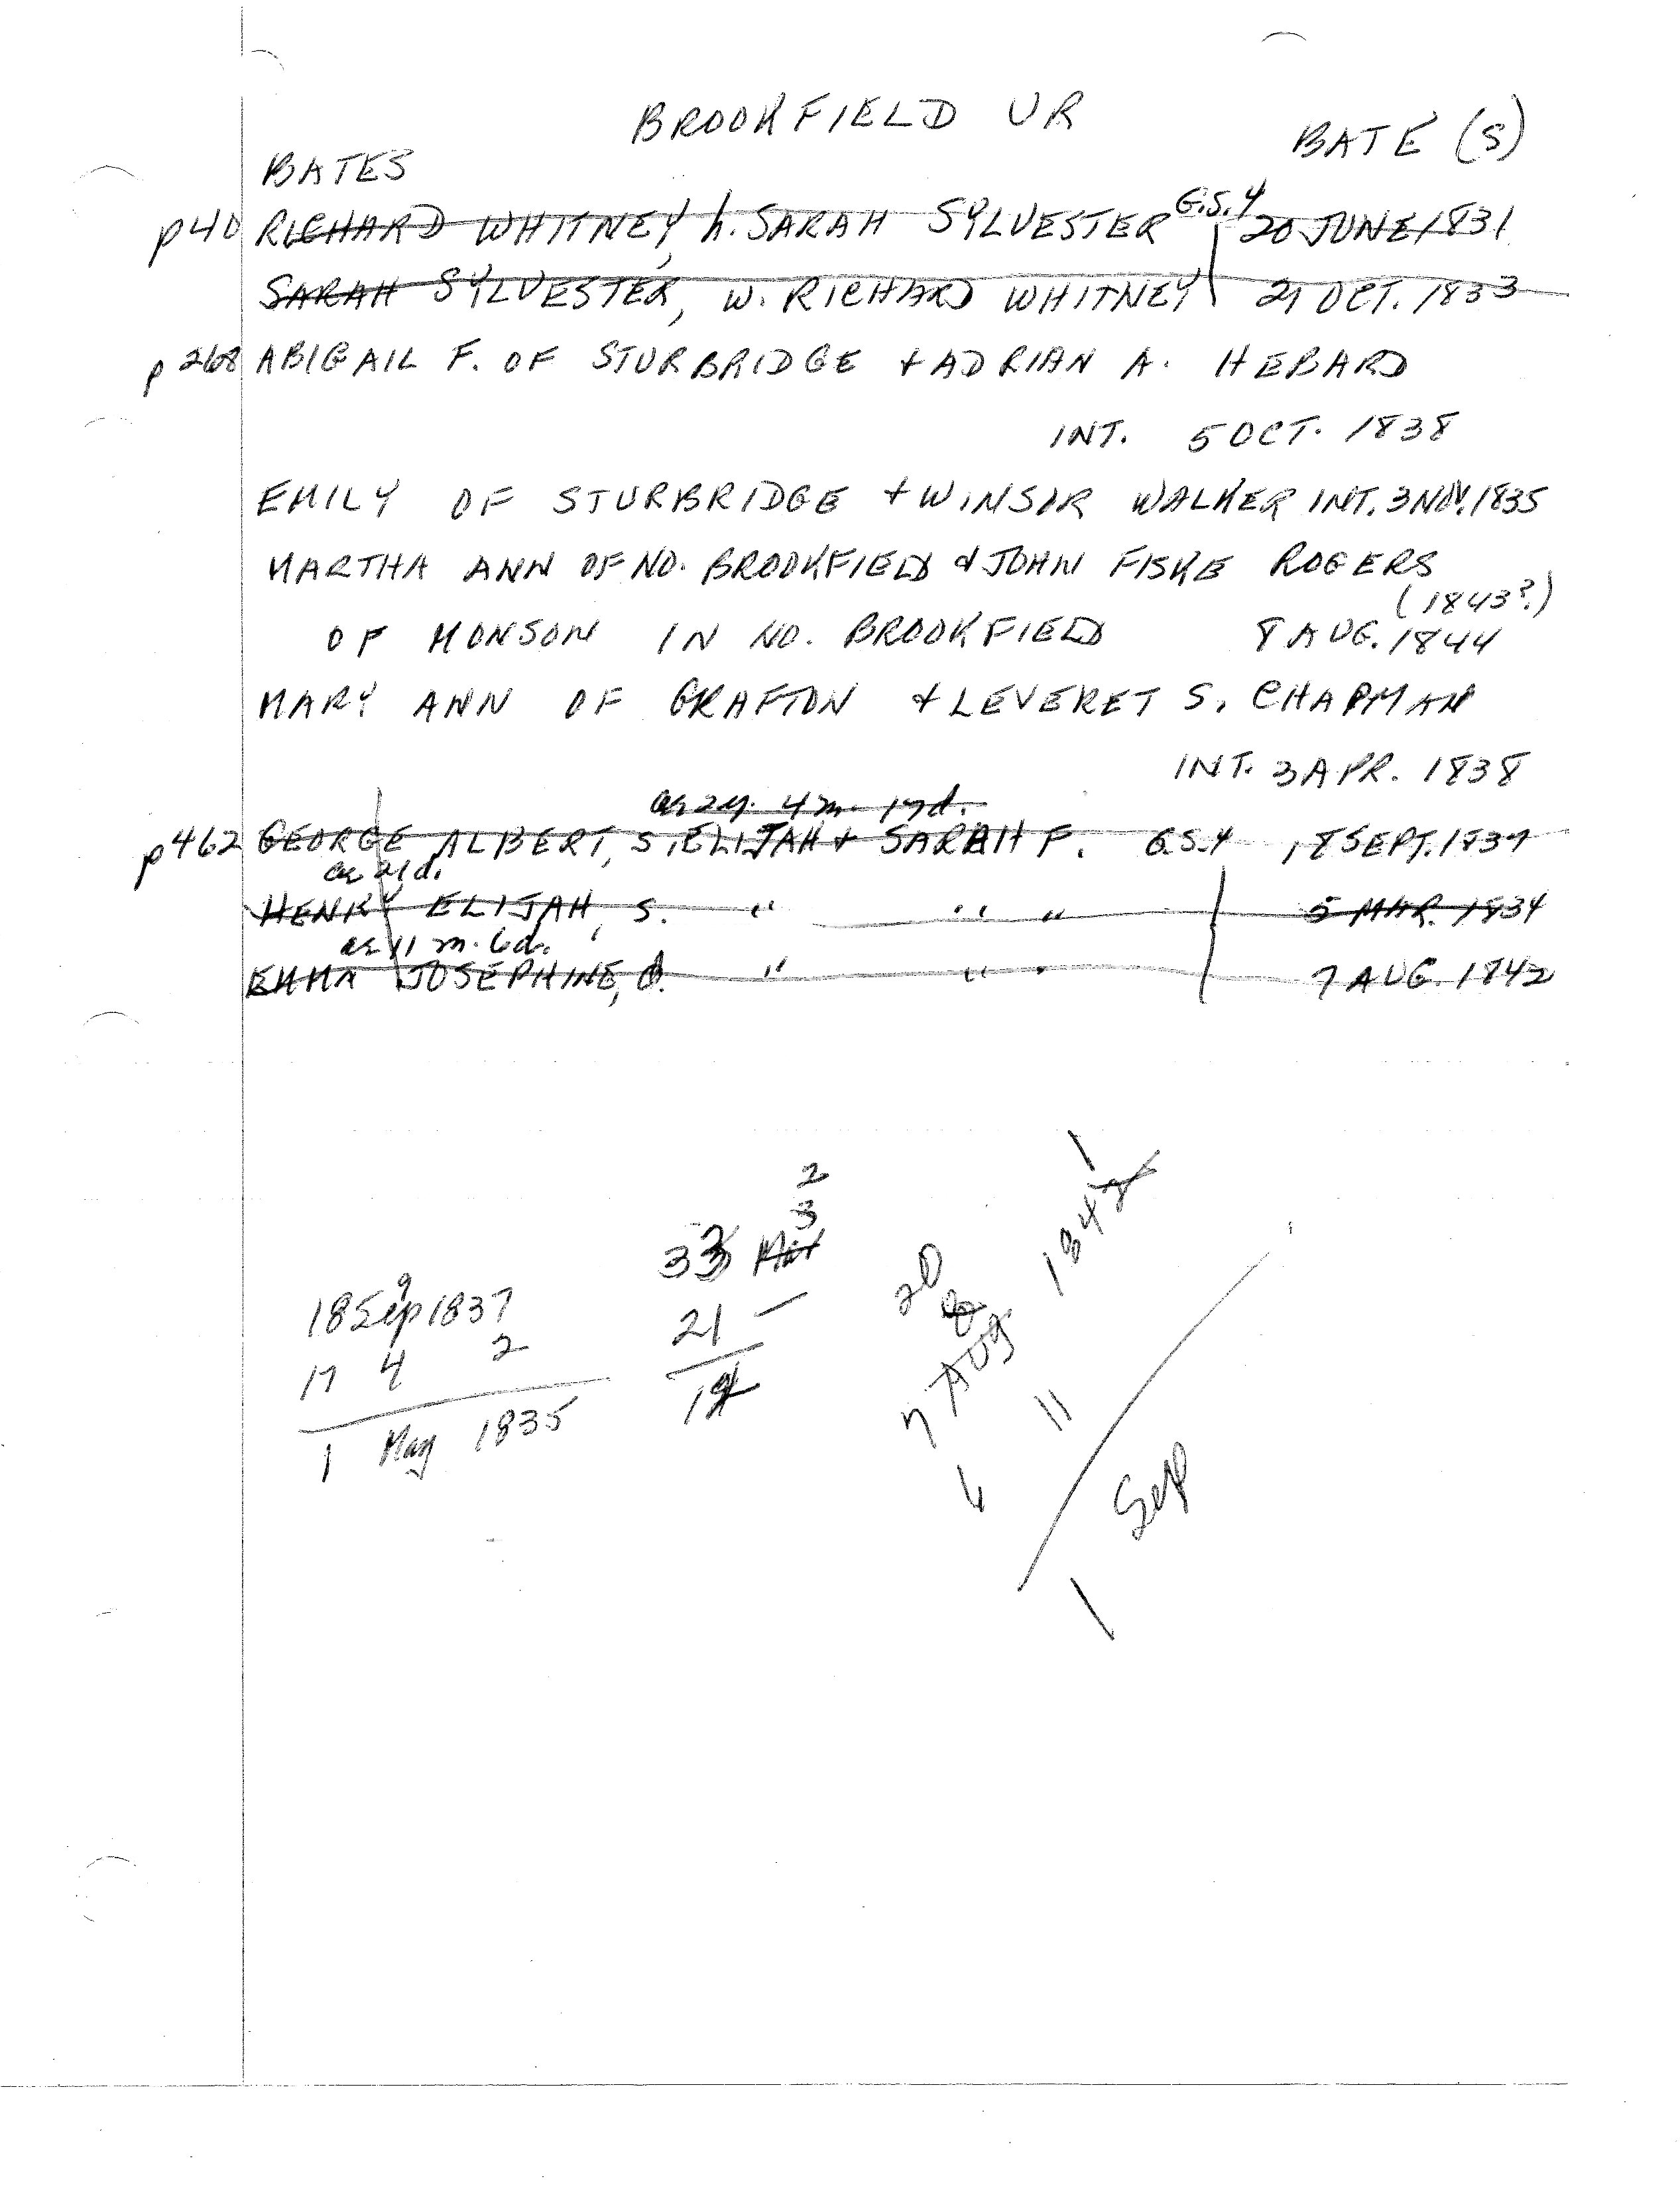 BROOKFIELD VR
BATE (S)
BATES
p40 RICHARD WHITNEY, h. SARAH SYLVESTER G.S.4 20 JUNE 1831
SARAH SYLVESTER, W. RICHARD WHITNEY 29 OCT. 1833
p268 ABIGAIL F. OF STURBRIDGE + ADRIAN A. HEBARD
INT. 5 OCT. 1838
EMILY OF STURBRIDGE + WINSOR WALKER INT. 3 NOV. 1835
MARTHA ANN OF NO. BROOKFIELD & JOHN FISKE ROGERS
(1843?)
OF MONSON IN NO. BROOKFIELD 8 AUG. 1844
MARY ANN OF GRAFTON + LEVERET S. CHAPMAN
INT. 3 APR. 1838
ae 2y. 4m. 17d.
p462 GEORGE ALBERT, S. ELIJAH + SARAH F. G.S.4 18 SEPT. 1837
ae 21d.
HENRY ELIJAH, S. " " " 5 MAR. 1834
ae 11 m. 6d.
EMMA JOSEPHINE, d. " " " 7 AUG. 1842
2
3
33 Mar
21 —
12
9
18 Sep 1837
17 4 2
1 May 1835
20
8 1
7 Aug 1842
6 11
1 Sep